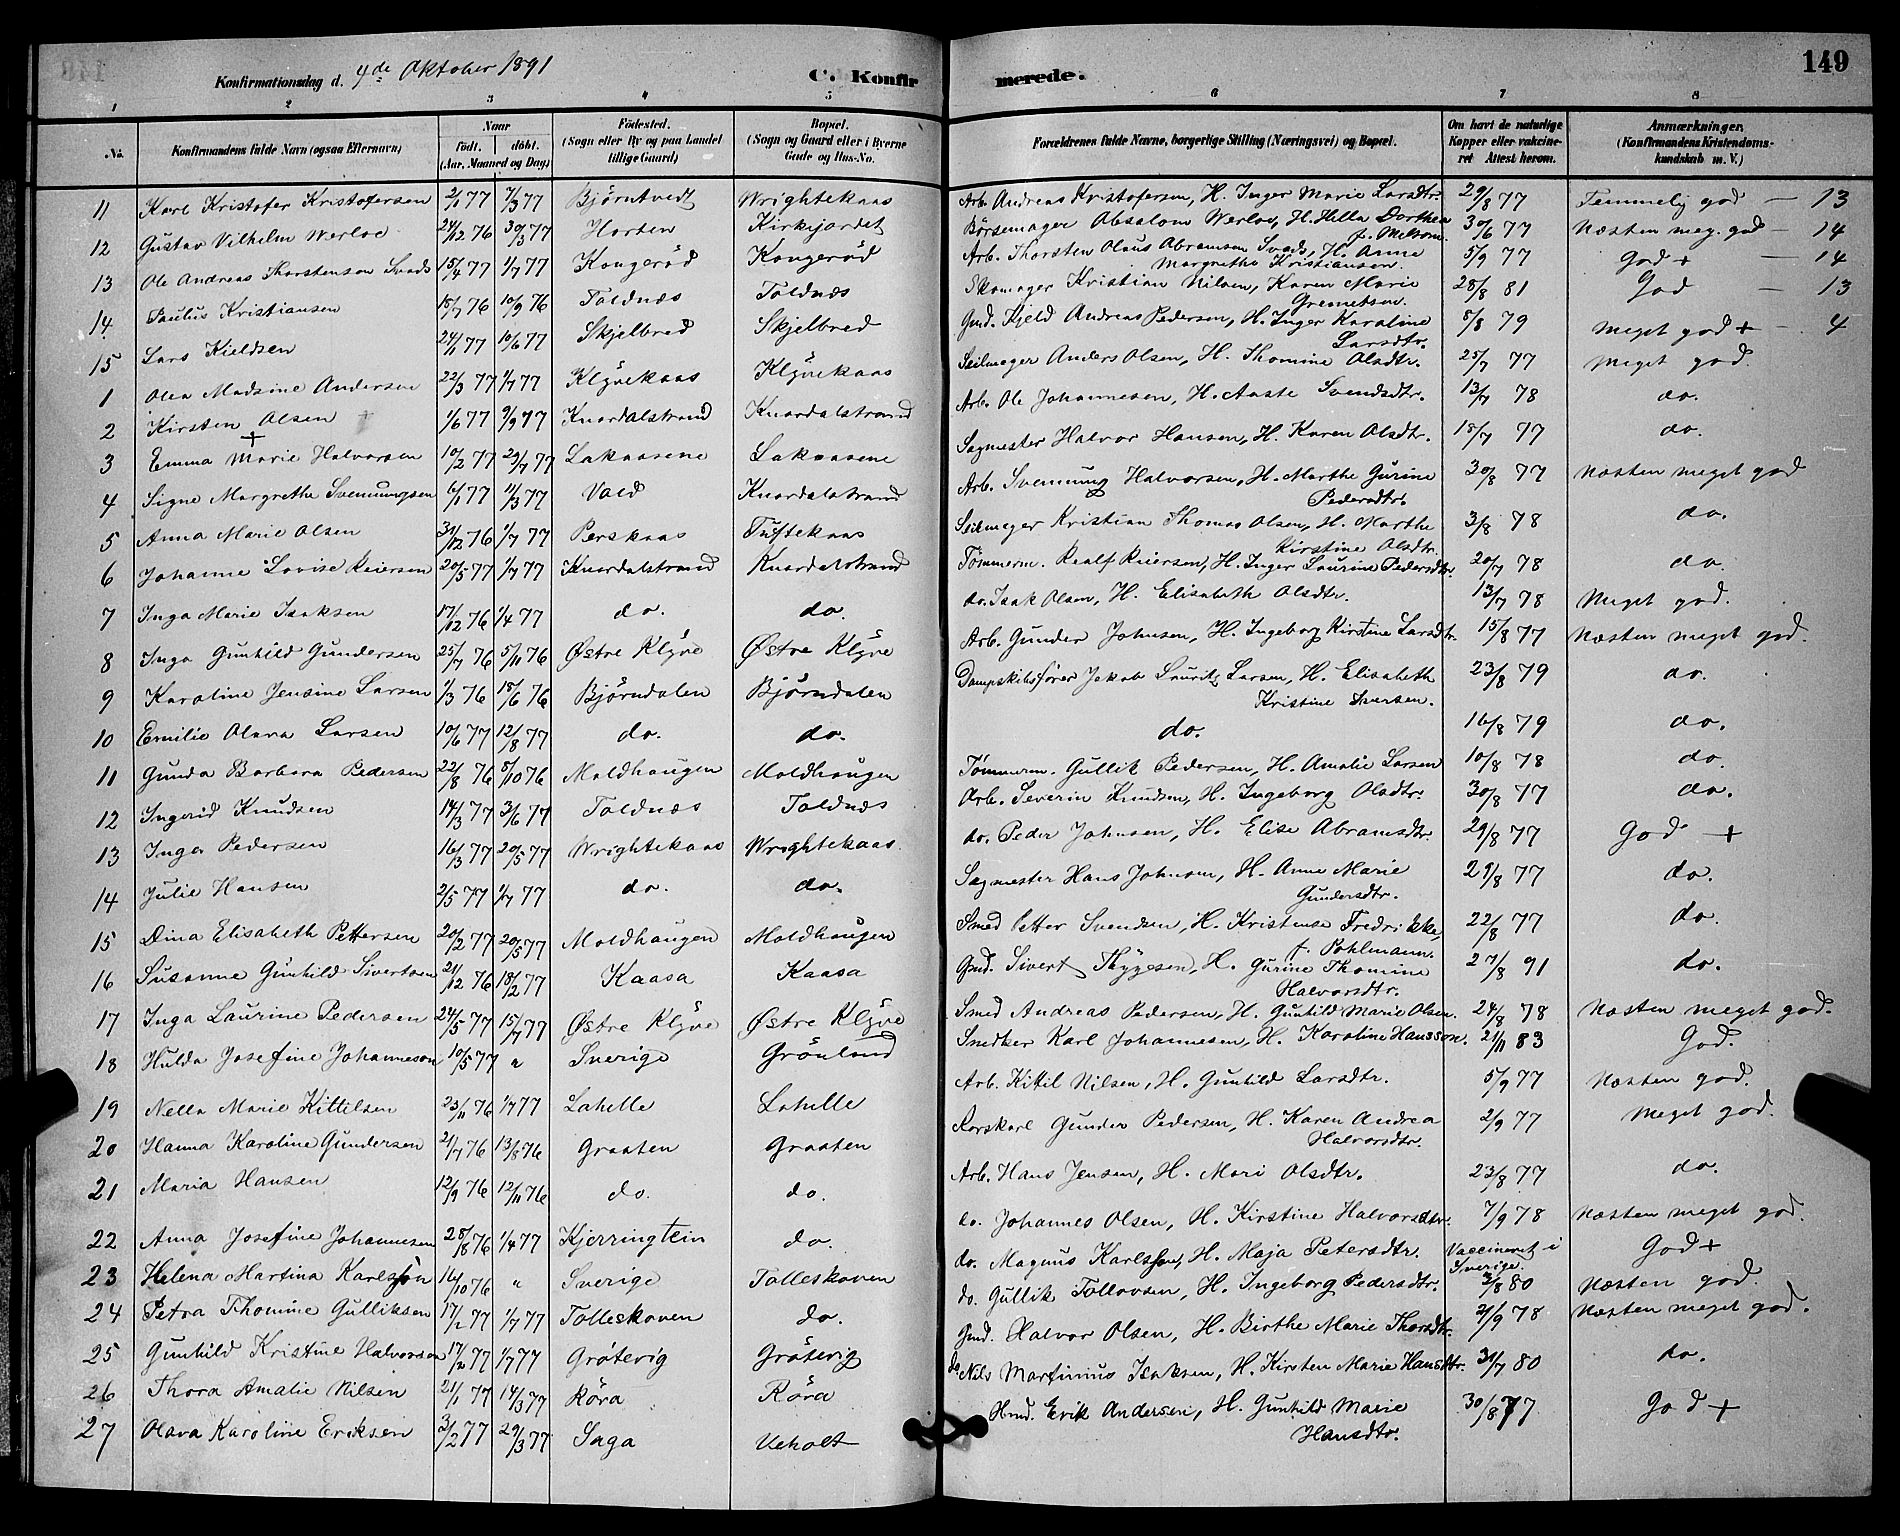 149
Konfirmationsdag d. 4de Oktober 1891 C. Konfirmerede.
1 2 3 4 5 6 7 8
No. Konfirmandens fulde Navn (ogsaa Efternavn) Naar födt. döbt. (Aar, Maaned og Dag) Födested. (Sogn eller By og paa Landet tillige Gaard) Bopæl. (Sogn og Gaard eller i Byerne Gade og Hus-No. Forældrenes fulde Navne, borgerlige Stilling (Næringsvei) og Bopæl. Om havt de naturlige Kopper eller vakcineret Attest herom. Anmærkninger (Konfirmandens Kristendomskundskab m. V.)
11 Karl Kristofer Kristofersen 2/1 77 7/3 77 Björntvedt Wrightekaas Arb. Andreas Kristofersen, H. Inger Marie Larsdtr. 29/8 77 Temmelig god — 13
12 Gustav Vilhelm Werloe 24/12 76 30/3 77 Horten Kirkjordet Börsemager Absalom Werloe, H. Hella Dorthea f. Melsom. 30/6 77 Næsten meg. god — 14
13 Ole Andreas Thorstensen Svads 15/4 77 1/7 77 Kongeröd Kongeröd Arb. Thorsten Olaus Abramsen Svads, H. Anne Margrethe Kristiansen. 5/9 77 God + — 14
14 Paulus Kristiansen 15/7 76 10/9 76 Toldnæs Toldnæs Skomager Kristian Nilsen, Karen Marie 28/8 81 God — 13
15 Lars Kieldsen 24/1 77 10/6 77 Skjelbred Skjelbred Gmd. Kjeld Andreas Pedersen, H. Inger Karoline Larsdtr. 5/8 79 Meget god + — 4
1 Olea Madsine Andersen 22/3 77 1/7 77 Klyvekaas Klyvekaas Seilmager Anders Olsen, H. Thomine Olsdtr. 25/7 77 Meget god.
2 Kirsten Olsen 1/6 77 9/9 77 Knardalstrand Knardalstrand Arb. Ole Johannesen, H. Aaste Svendsdtr. 13/7 78 do.
3 Emma Marie Halvorsen 10/2 77 29/7 77 Lakaasene Lakaasene Sagmester Halvor Hansen, H. Karen Olsdtr. 18/7 77 do.
4 Signe Margrethe Svennungsen 6/1 77 11/3 77 Vold Knardalstrand Arb. Svennung Halvorsen, H. Marthe Gurine Pedersdtr. 30/8 77 Næsten meget god
5 Anna Marie Olsen 31/12 76 1/7 77 Perskaas Tuftekaas Seilmager Kristian Thomas Olsen, H. Marthe Kirstine Olsdtr. 3/8 78 do.
6 Johanne Lovise Reiersen 20/5 77 1/7 77 Knardalstrand Knardalstrand Tömmerm. Realf Reiersen, H. Inger Laurine Pedersdtr. 20/7 78 do.
7 Inga Marie Isaksen 17/12 76 1/4 77 do. do. do. Isak Olsen, H. Elisabeth Olsdtr. 13/7 78 Meget god.
8 Inga Gunhild Gundersen 25/7 76 5/11 76 Østre Klyve Østre Klyve Arb. Gunder Johnsen, H. Ingeborg Kirstine Larsdtr. 15/8 77 Næsten meget god.
9 Karoline Jensine Larsen 1/3 76 18/6 76 Björndalen Björndalen Dampskibsförer Jakob Lauritz Larsen, H. Elisabeth Kristine Iversen. 23/8 79 do.
10 Emilie Olava Larsen 10/6 77 12/8 77 do. do. do. 16/8 79 do.
11 Gunda Barbara Pedersen 22/8 76 5/10 76 Moldhaugen Moldhaugen Tömmerm. Gullik Pedersen, H. Amalie Larsen 10/8 78 do.
12 Ingerid Knudsen 14/3 77 3/6 77 Toldnæs Toldnæs Arb. Severin Knudsen, H. Ingeborg Olsdtr. 30/8 77 do.
13 Inga Pedersen 16/3 77 20/5 77 Wrightekaas Wrightekaas. do. Peder Johnsen, H. Elise Abramsdtr. 29/8 77 God +
14 Julie Hansen 2/5 77 1/7 77 do. do. Sagmester Hans Johnsen, H. Anne Marie Gundersdtr. 29/8 77 do.
15 Dina Elisabeth Pettersen 20/2 77 20/5 77 Moldhaugen Moldhaugen Smed Petter Svendsen, H. Kristense Fredrikke, f. Pohlmann. 22/8 77 do.
16 Susanne Gunhild Sivertsen 21/12 76 18/2 77 Kaasa Kaasa Gmd. Sivert Thygesen, H. Gurine Thomine Halvorsdtr. 27/8 91 do.
17 Inga Laurine Pedersen 24/5 77 15/7 77 Østre Klyve Østre Klyve Smed Andreas Pedersen, H. Gunhild Marie Olsen. 24/8 78 Næsten meget god.
18 Hulda Josefine Johannesen 10/5 77 " Sverige Grönland Snedker Karl Johannesen, H. Karoline Hansson. 21/11 83 God.
19 Nella Marie Kittilsen 23/11 76 1/7 77 Lahelle Lahelle Arb. Kittil Nilsen, H. Gunhild Larsdtr. 5/9 77 Næsten god.
20 Hanna Karoline Gundersen 21/7 76 13/8 76 Graaten Graaten Rorskarl Gunder Pedersen, H. Karen Andrea Halvorsdtr. 2/9 77 Meget god.
21 Maria Hansen 12/9 76 12/11 76 do. do. Arb. Hans Jensen, H. Mari Olsdtr. 23/8 77 do.
22 Anna Josefine Johannesen 28/8 76 1/4 77 Kjerringtein do. do. Johannes Olsen, H. Kirstine Halvorsdtr. 7/9 78 Næsten meget god.
23 Helena Martina Karlsson 16/10 76 " Sverige Tolleskoven do. Magnus Karlsson, H. Maja Petersdtr. Vaccineret i Sverige. God +
24 Petra Thomine Gulliksen 17/1 77 1/7 77 Tolleskoven do. do. Gullik Tollovsen, H. Ingeborg Pedersdtr. 3/8 80 Næsten god.
25 Gunhild Kristine Halvorsen 17/2 77 1/7 77 Grötevig Grötevig Gmd. Halvor Olsen, H. Birthe Marie Thorsdtr. 21/9 78 Næsten meget god.
26 Thora Amalie Nilsen 21/1 77 14/3 77 Röra Röra do. Nils Martinius Isaksen, H. Kirsten Marie Hansdtr. 31/7 80 do.
27 Olava Karoline Eriksen 3/2 77 29/3 77 Saga Ueholt Hmd. Erik Andersen, H. Gunhild Marie Hansdtr. 30/8 77 God +